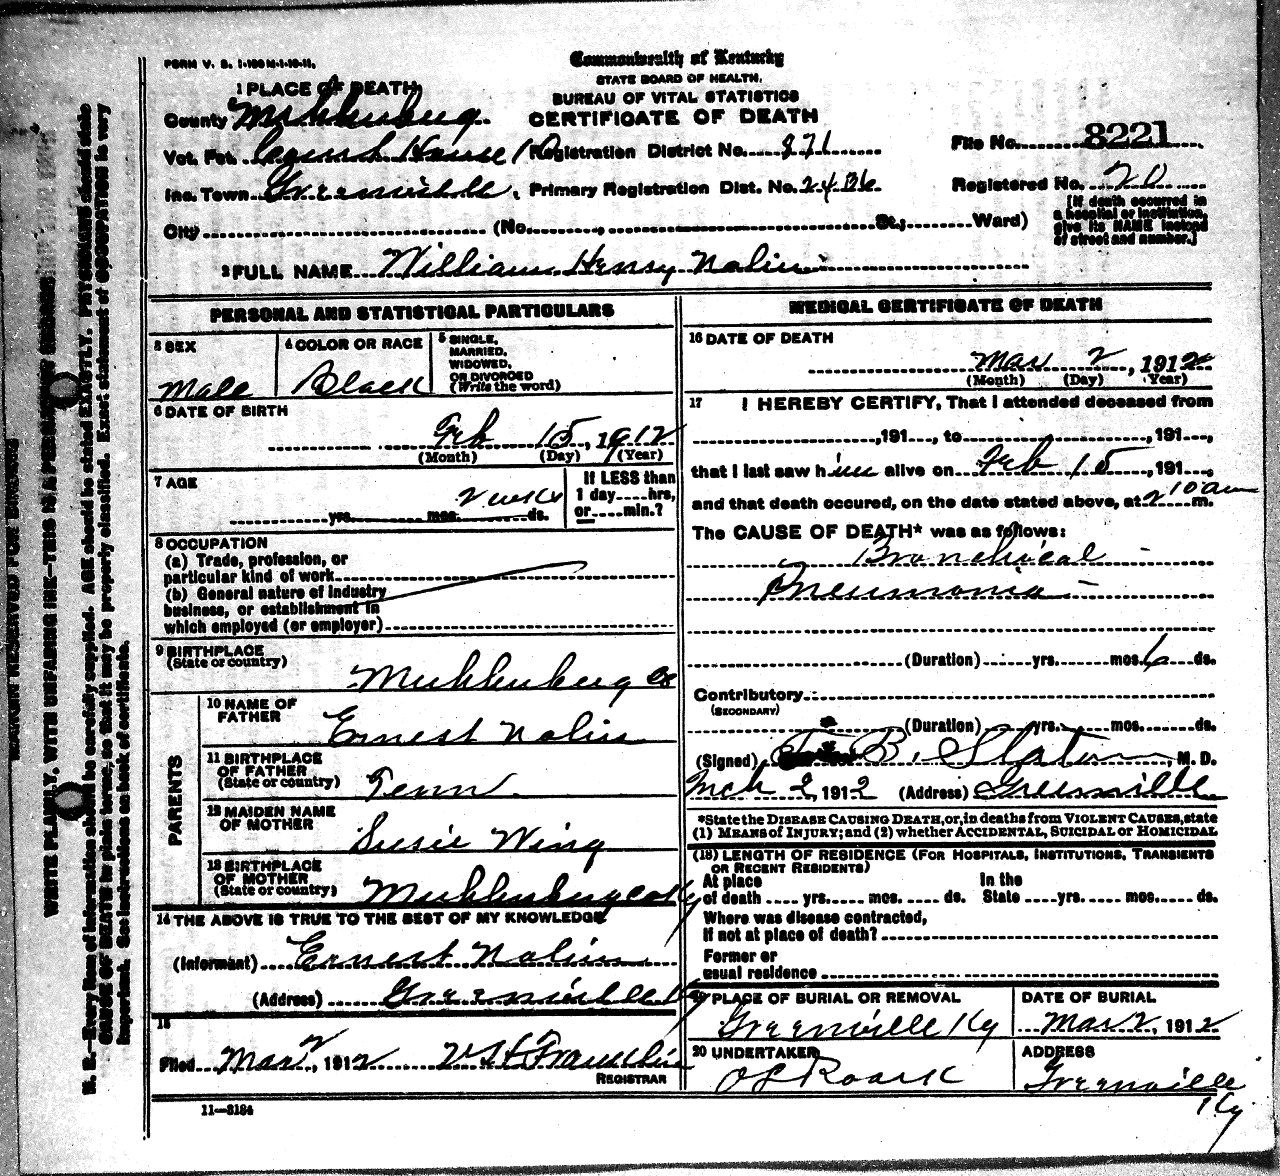 FORM V. S. 1-100 M-1-10-11.
Commonwealth of Kentucky
STATE BOARD OF HEALTH.
BUREAU OF VITAL STATISTICS
CERTIFICATE OF DEATH
1 PLACE OF DEATH
County Muhlenburg.
Vot. Pct. Court House Registration District No. 871
File No. 8221
Inc. Town Greenville. Primary Registration Dist. No. 2436
Registered No. 20
City (No. , St.; Ward)
[If death occurred in
a hospital or institution,
give its NAME instead
of street and number.]
2 FULL NAME William Henry Nolin
PERSONAL AND STATISTICAL PARTICULARS
3 SEX
Male
4 COLOR OR RACE
Black
5 SINGLE,
MARRIED,
WIDOWED,
OR DIVORCED
(Write the word)
6 DATE OF BIRTH
Feb 15, 1912
(Month) (Day) (Year)
7 AGE
2 weeks
yrs. mos. ds.
If LESS than
1 day hrs,
or min.?
8 OCCUPATION
(a) Trade, profession, or
particular kind of work
(b) General nature of industry
business, or establishment in
which employed (or employer)
9 BIRTHPLACE
(State or country)
Muhlenburg Co
PARENTS
10 NAME OF
FATHER
Ernest Nolin
11 BIRTHPLACE
OF FATHER
(State or country)
Tenn.
12 MAIDEN NAME
OF MOTHER
Susie Wing
13 BIRTHPLACE
OF MOTHER
(State or country)
Muhlenburg Co Ky
14 THE ABOVE IS TRUE TO THE BEST OF MY KNOWLEDGE
(Informant) Ernest Nolin
(Address) Greenville Ky
15
Filed Mar 2, 1912 Franklin
REGISTRAR
11—3184
MEDICAL CERTIFICATE OF DEATH
16 DATE OF DEATH
Mar 2, 1912
(Month) (Day) (Year)
17 I HEREBY CERTIFY, That I attended deceased from
, 191 , to , 191 ,
that I last saw him alive on Feb 15, 191 ,
and that death occured, on the date stated above, at 2 10 am m.
The CAUSE OF DEATH* was as follows:
Bronchical
Pneumonia
(Duration) yrs. mos. 6 ds.
Contributory
(SECONDARY)
(Duration) yrs. mos. ds.
(Signed) B. Slaton, M. D.
Mch 2, 1912 (Address) Greenville
*State the DISEASE CAUSING DEATH, or, in deaths from VIOLENT CAUSES, state
(1) MEANS of INJURY; and (2) whether ACCIDENTAL, SUICIDAL or HOMICIDAL
(18) LENGTH OF RESIDENCE (FOR HOSPITALS, INSTITUTIONS, TRANSIENTS
OR RECENT RESIDENTS)
At place In the
of death yrs. mos. ds. State yrs. mos. ds.
Where was disease contracted,
If not at place of death?
Former or
usual residence
19 PLACE OF BURIAL OR REMOVAL
Greenville Ky
DATE OF BURIAL
Mar 2, 1912
20 UNDERTAKER
O L Roark
ADDRESS
Greenville
Ky
MARGIN RESERVED FOR BINDING
WRITE PLAINLY, WITH UNFADING INK—THIS IS A PERMANENT RECORD
N. B.—Every item of information should be carefully supplied. AGE should be stated EXACTLY. PHYSICIANS should state
CAUSE OF DEATH in plain terms, so that it may be properly classified. Exact statement of OCCUPATION is very
important. See instructions on back of certificate.